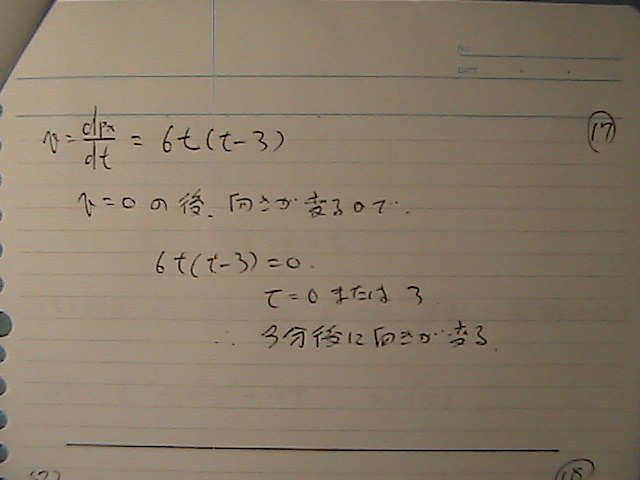 NO.
DATE
⑰
v = dpx/dt = 6t(t-3)
v=0 の後、向きが変るので.
6t(t-3)=0.
t=0 または 3
∴ 3分後に向きが変る.
⑱